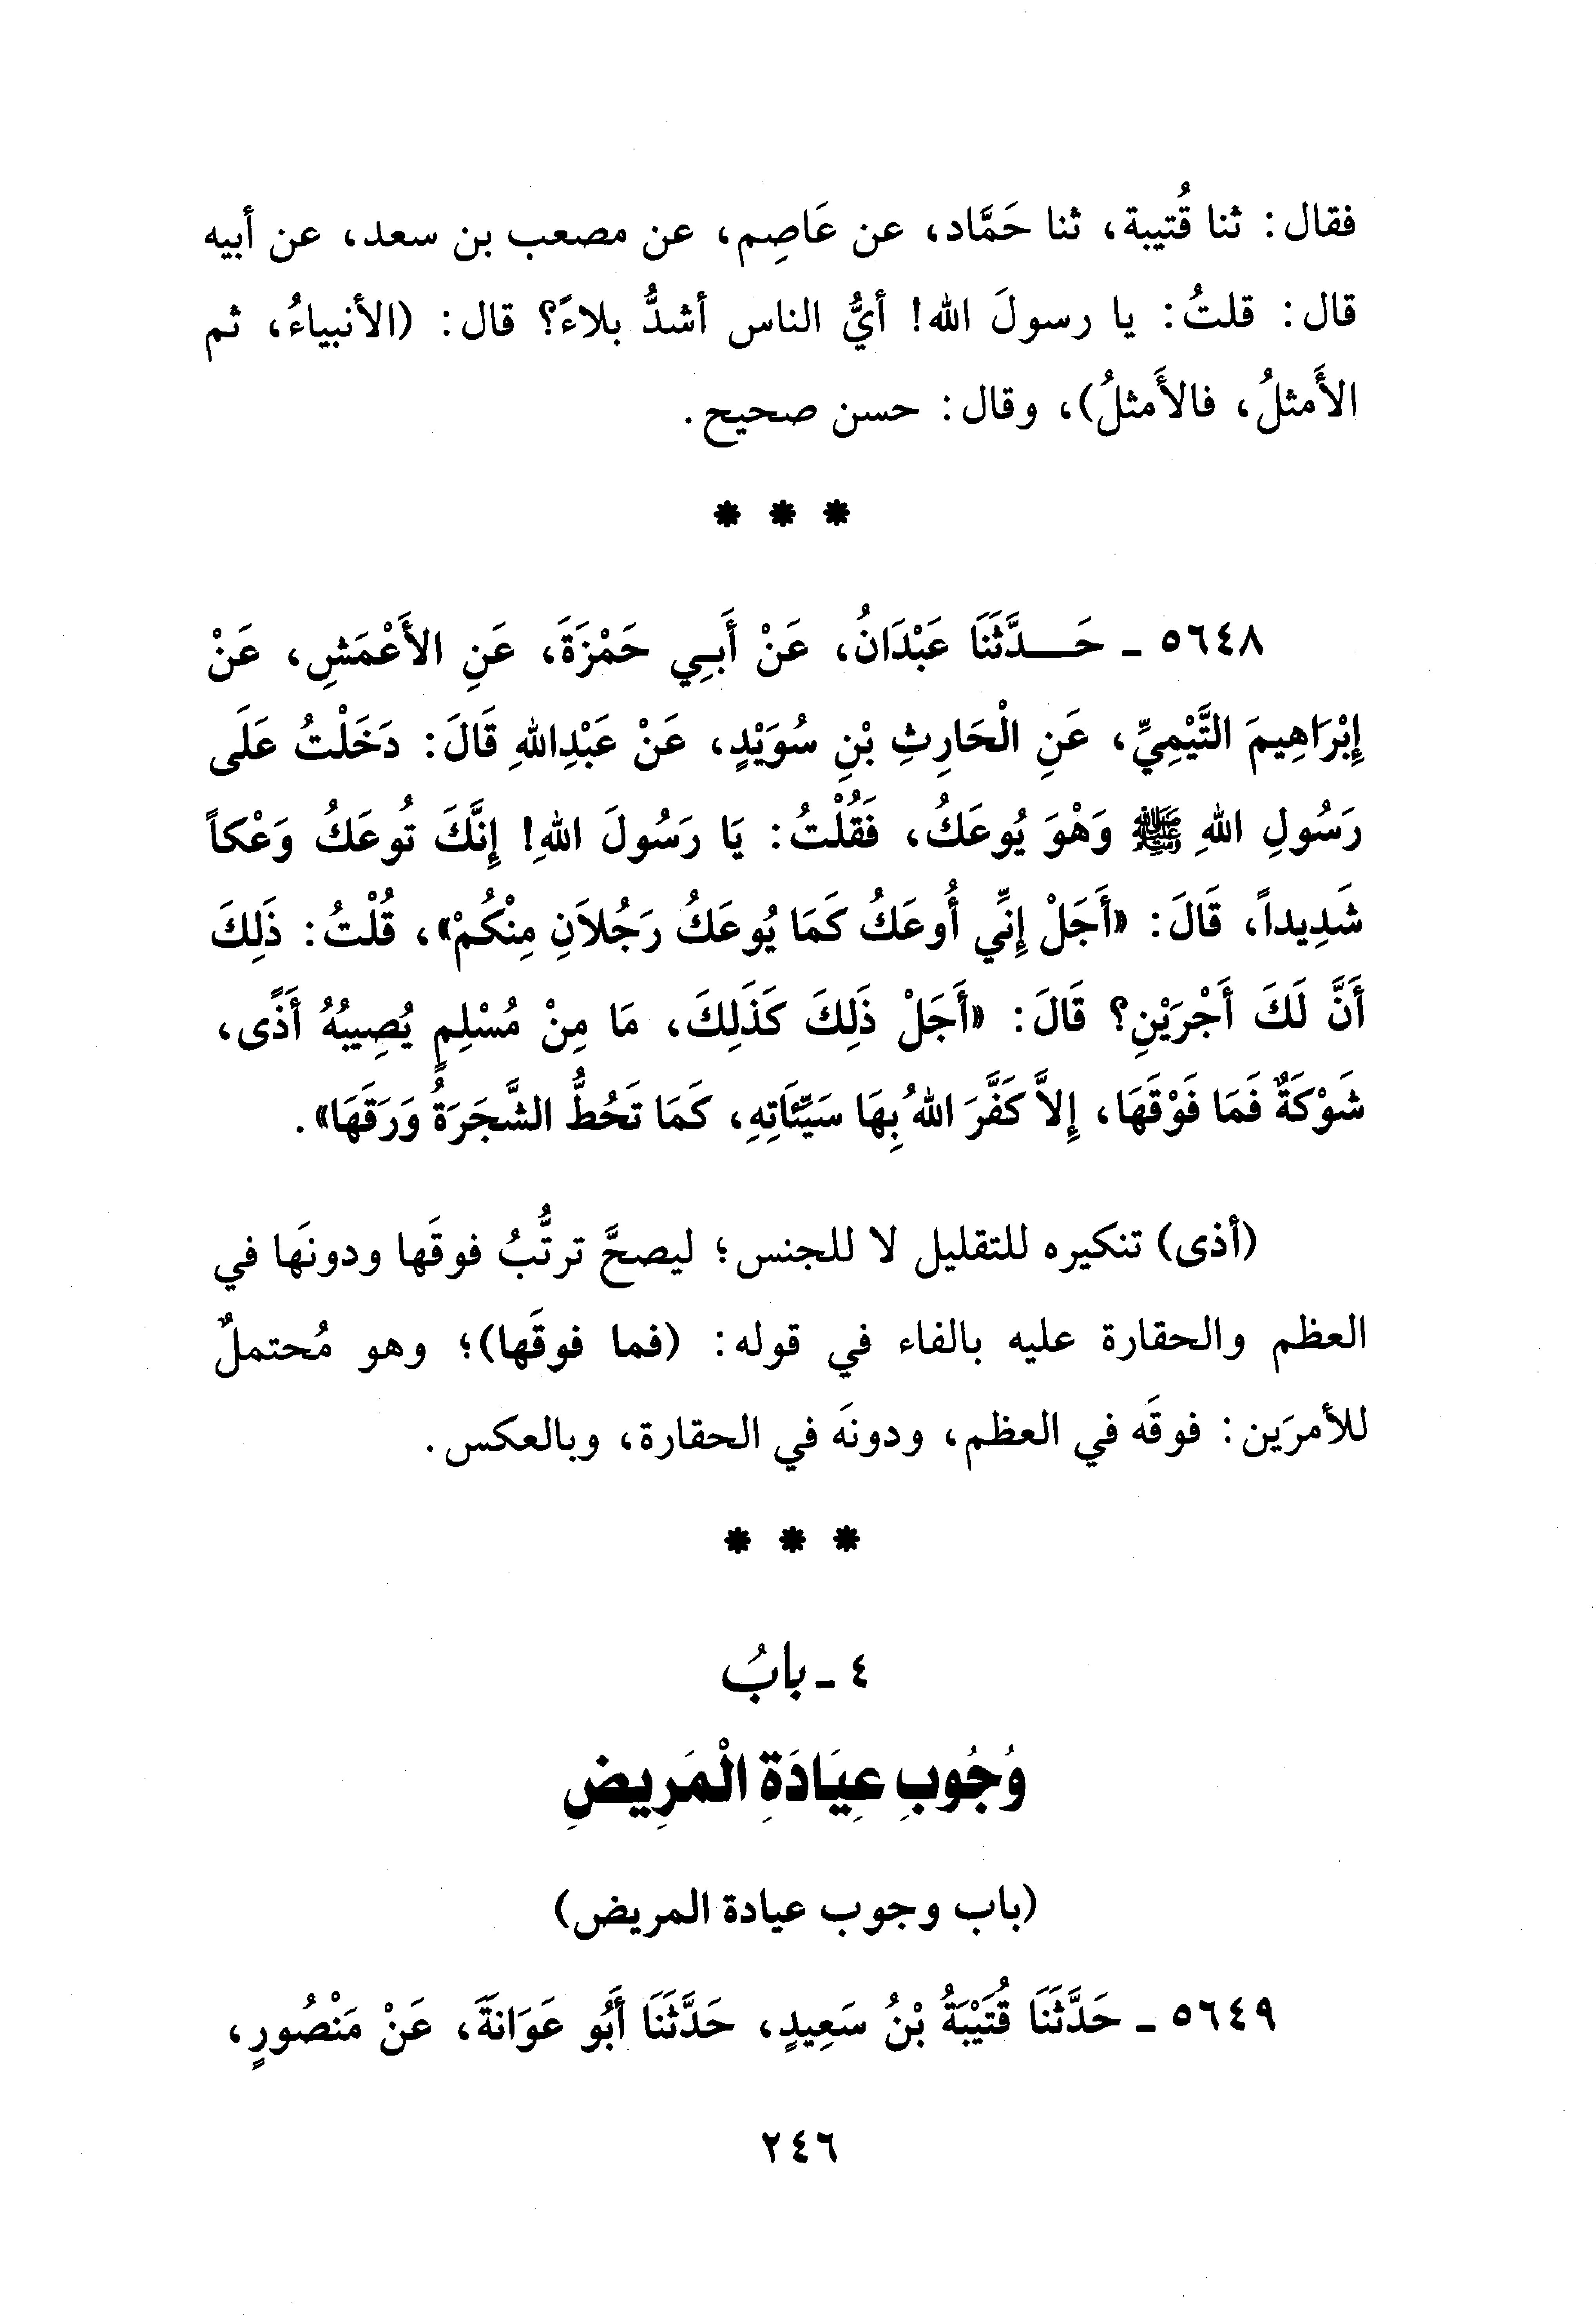 فقال: ثنا قُتيبة، ثنا حَمَّاد، عن عَاصِم، عن مصعب بن سعد، عن أبيه
قال: قلتُ: يا رسولَ الله! أيُّ الناس أشدُّ بلاءً؟ قال: (الأنبياءُ، ثم
الأَمثلُ، فالأَمثلُ)، وقال: حسن صحيح.
* * *
٥٦٤٨ - حَـــدَّثَنَا عَبْدَانُ، عَنْ أَبِي حَمْزَةَ، عَنِ الأَعْمَشِ، عَنْ
إِبْرَاهِيمَ التَّيْمِيِّ، عَنِ الْحَارِثِ بْنِ سُوَيْدٍ، عَنْ عَبْدِاللهِ قَالَ: دَخَلْتُ عَلَى
رَسُولِ اللهِ ﷺ وَهْوَ يُوعَكُ، فَقُلْتُ: يَا رَسُولَ اللهِ! إِنَّكَ تُوعَكُ وَعْكاً
شَدِيداً، قَالَ: «أَجَلْ إِنِّي أُوعَكُ كَمَا يُوعَكُ رَجُلاَنِ مِنْكُمْ»، قُلْتُ: ذَلِكَ
أَنَّ لَكَ أَجْرَيْنِ؟ قَالَ: «أَجَلْ ذَلِكَ كَذَلِكَ، مَا مِنْ مُسْلِمٍ يُصِيبُهُ أَذًى،
شَوْكَةٌ فَمَا فَوْقَهَا، إِلاَّ كَفَّرَ اللهُ بِهَا سَيِّئَاتِهِ، كَمَا تَحُطُّ الشَّجَرَةُ وَرَقَهَا».
(أذى) تنكيره للتقليل لا للجنس؛ ليصحَّ ترتُّبُ فوقَها ودونَها في
العظم والحقارة عليه بالفاء في قوله: (فما فوقَها)؛ وهو مُحتملٌ
للأمرَين: فوقَه في العظم، ودونَه في الحقارة، وبالعكس.
* * *
٤ - بابُ
وُجُوبِ عِيَادَةِ الْمَرِيضِ
(باب وجوب عيادة المريض)
٥٦٤٩ - حَدَّثَنَا قُتَيْبَةُ بْنُ سَعِيدٍ، حَدَّثَنَا أَبُو عَوَانَةَ، عَنْ مَنْصُورٍ،
٢٤٦